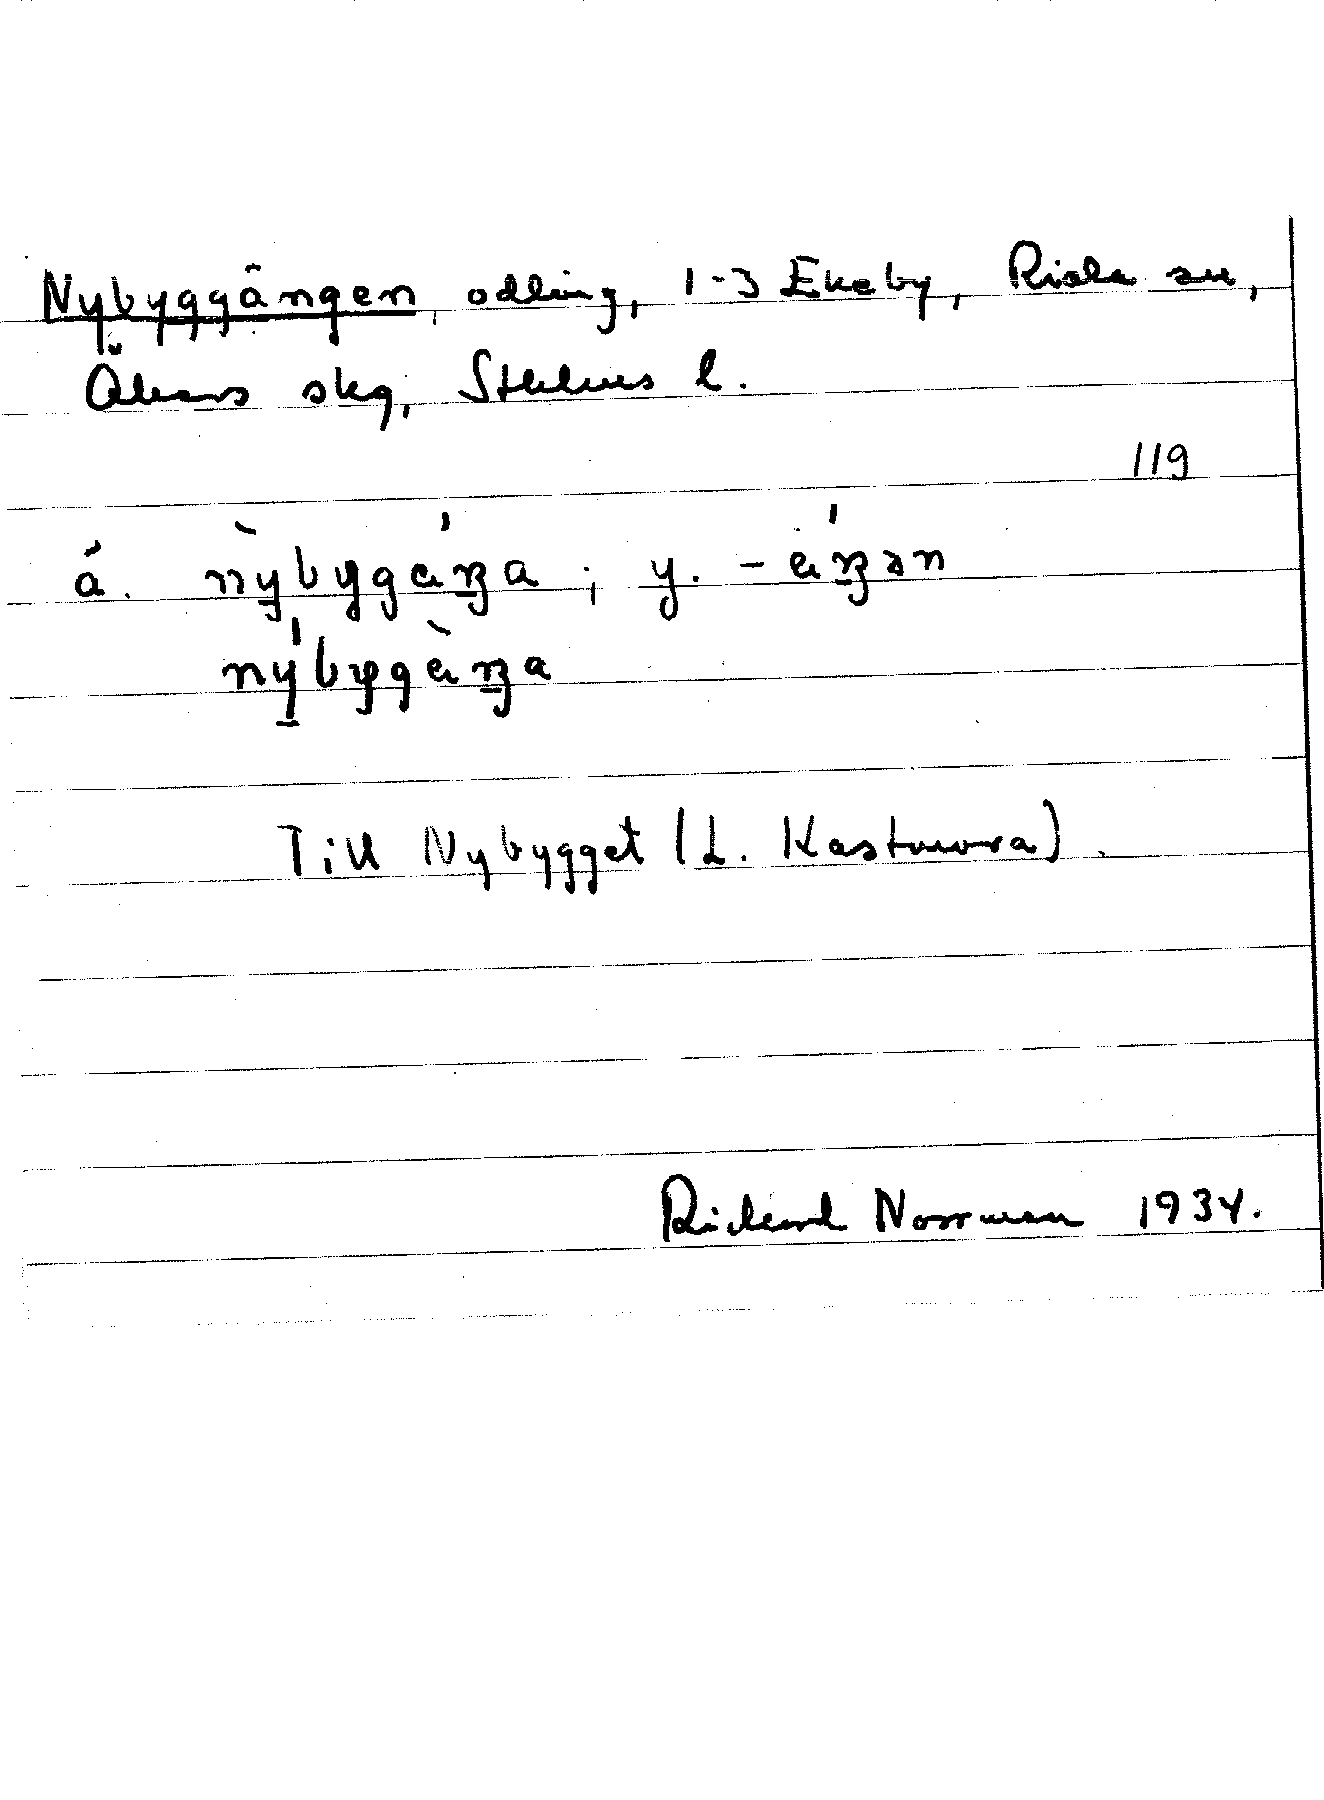 Nybyggängen, odling, 1-3 Ekeby, Riala sn,
Åkers skg, Sthlms l.
119
ä. nỳbygɛ́ŋa; y. -ɛ́ŋən
nýbygɛ̀ŋa
Till Nybygget (L. Kastmora).
Richard Norrman 1934.